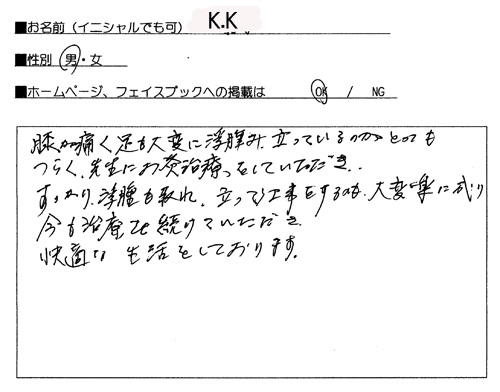 ■お名前（イニシャルでも可） K.K
■性別 男・女
■ホームページ、フェイスブックへの掲載は OK / NG
膝が痛く足も大変に浮腫み、立っているのがとても
つらく、先生にお灸治療をしていただき、
すっかり浮腫も取れ、立って仕事をするのも、大変楽に成り
今も治療を続けていただき
快適な生活をしております。